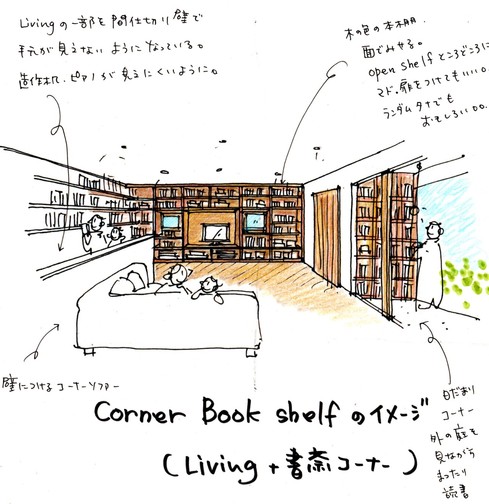 Livingの一部を間仕切り壁で
手元が見えないようになっている。
造作机、ピアノが見えにくいように。
木の色の本棚.
面でみせる。
open shelf ところどころに
マド、扉をつけてもいい。
ランダムタナでも
おもしろい。
壁につける コーナーソファー
日だまり
コーナー
外の庭を
見ながら
まったり
読書
Corner Book shelf のイメージ
(Living + 書斎コーナー)